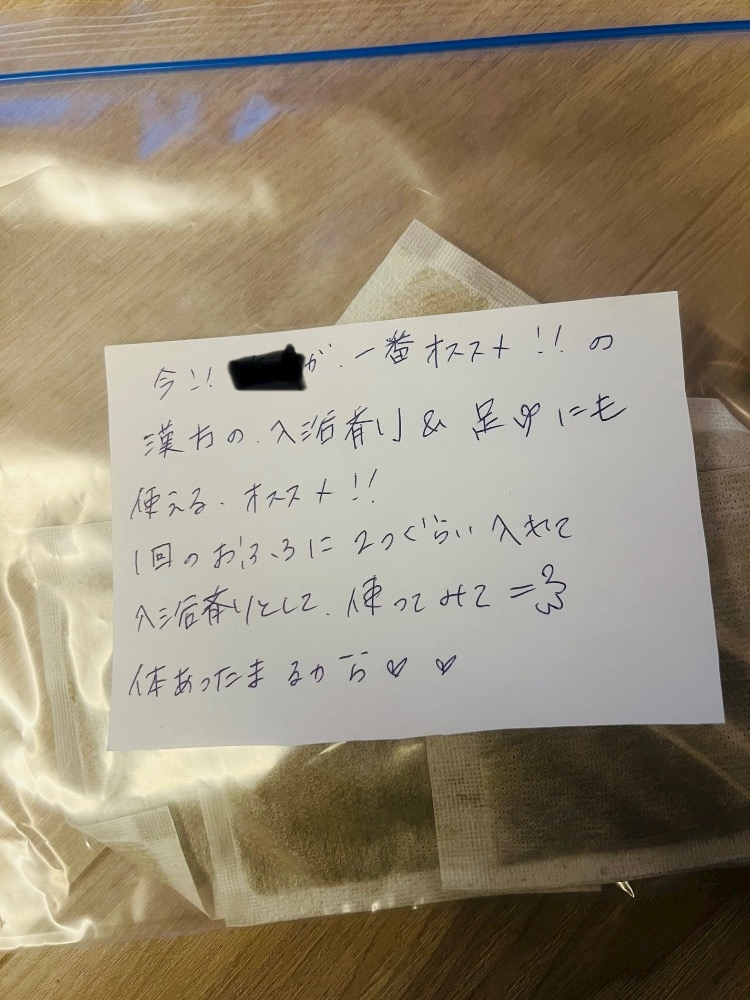 今!! が、一番オススメ!!の
漢方の、入浴剤 & 足湯にも
使える、オススメ!!
1回のおふろに2つぐらい入れて
入浴剤として、使ってみて=3
体あったまるから♡ ♡